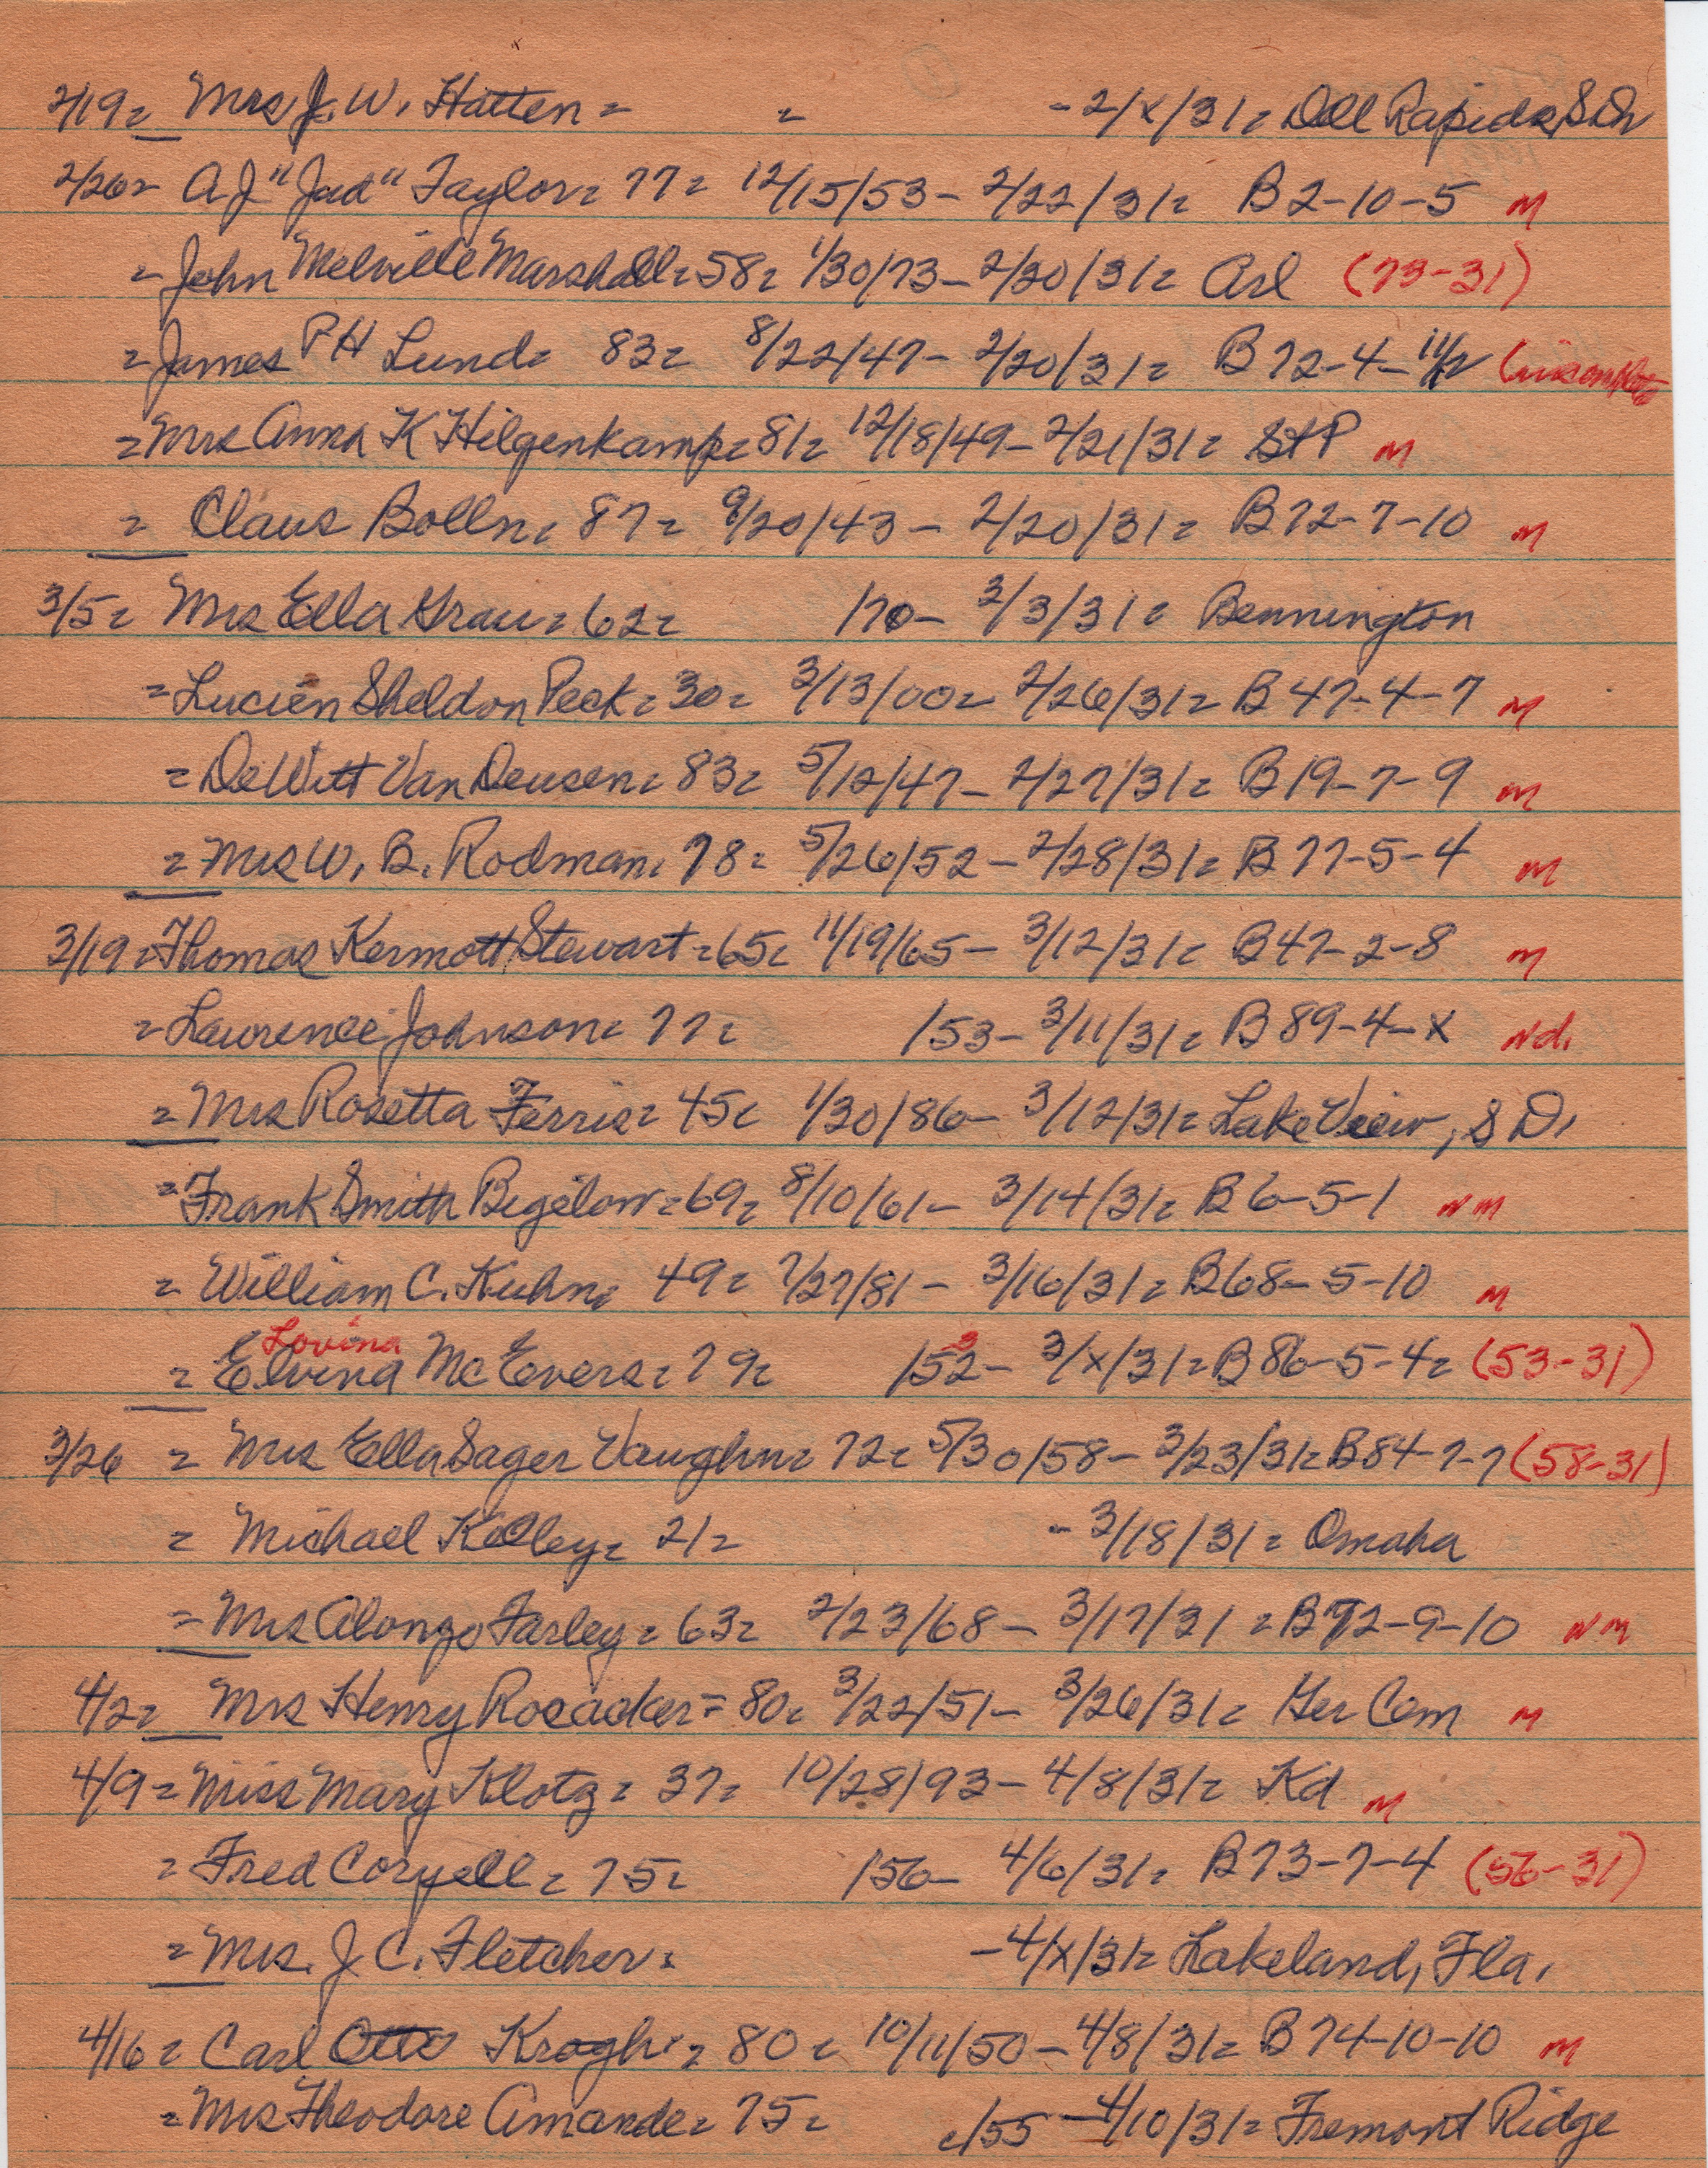 2/19= Mrs. J. W. Hatten = = - 2/x/31= Dell Rapids, S.D.
2/26= A J "Jud" Taylor= 77= 12/15/53- 2/22/31= B 2-10-5 M
= John Melville Marshall= 58= 1/30/73- 2/20/31= Arl (73-31)
= James P H Lund= 83= 8/22/47- 2/20/31= B 72-4-11/2 (incomplete
= Mrs Anna K Hilgenkamp= 81= 12/18/49- 2/21/31= St P M
= Claus Bolln= 87= 9/20/43 - 2/20/31= B72-7-10 M
3/5= Mrs Ella Grau= 62= /70- 3/3/31= Bennington
= Lucien Sheldon Peck= 30= 3/13/00= 2/26/31= B 47-4-7 M
= DeWitt Van Deusen= 83= 5/12/47- 2/27/31= B19-7-9 M
= Mrs W. B. Rodman= 78= 5/26/52- 2/28/31= B 77-5-4 M
3/19= Thomas Kermott Stewart= 65= 11/19/65- 3/12/31= B47-2-8 M
= Lawrence Johnson= 77= /53- 3/11/31= B 89-4-x Nd.
= Mrs Rosetta Ferris= 45= 1/30/86- 3/12/31= Lake View, S D.
= Frank Smith Bigelow= 69= 8/10/61- 3/14/31= B 6-5-1 NM
= William C. Kuhn= 49= 7/27/81- 3/16/31= B68-5-10 M
Lovina 3
= Elvina McEvers= 79= /52- 3/x/31= B 86-5-4= (53-31)
3/26 = Mrs Ella Sager Vaughn= 72= 5/30/58- 3/23/31= B84-7-7 (58-31)
= Michael Kelley= 21= - 3/18/31= Omaha
= Mrs Alonzo Farley= 63= 2/23/68- 3/17/31= B72-9-10 NM
4/2= Mrs Henry Rosacker= 80= 3/22/51- 3/26/31= Ger Cem M
4/9= Miss Mary Klotz= 37= 10/28/93- 4/8/31= Kd M
= Fred Coryell= 75= /56- 4/6/31= B73-7-4 (56-31)
= Mrs. J. C. Fletcher= -4/x/31= Lakeland, Fla.
4/16= Carl Otto Krogh= 80= 10/11/50- 4/8/31= B 74-10-10 M
= Mrs Theodore Amande= 75= /55 -4/10/31= Fremont Ridge